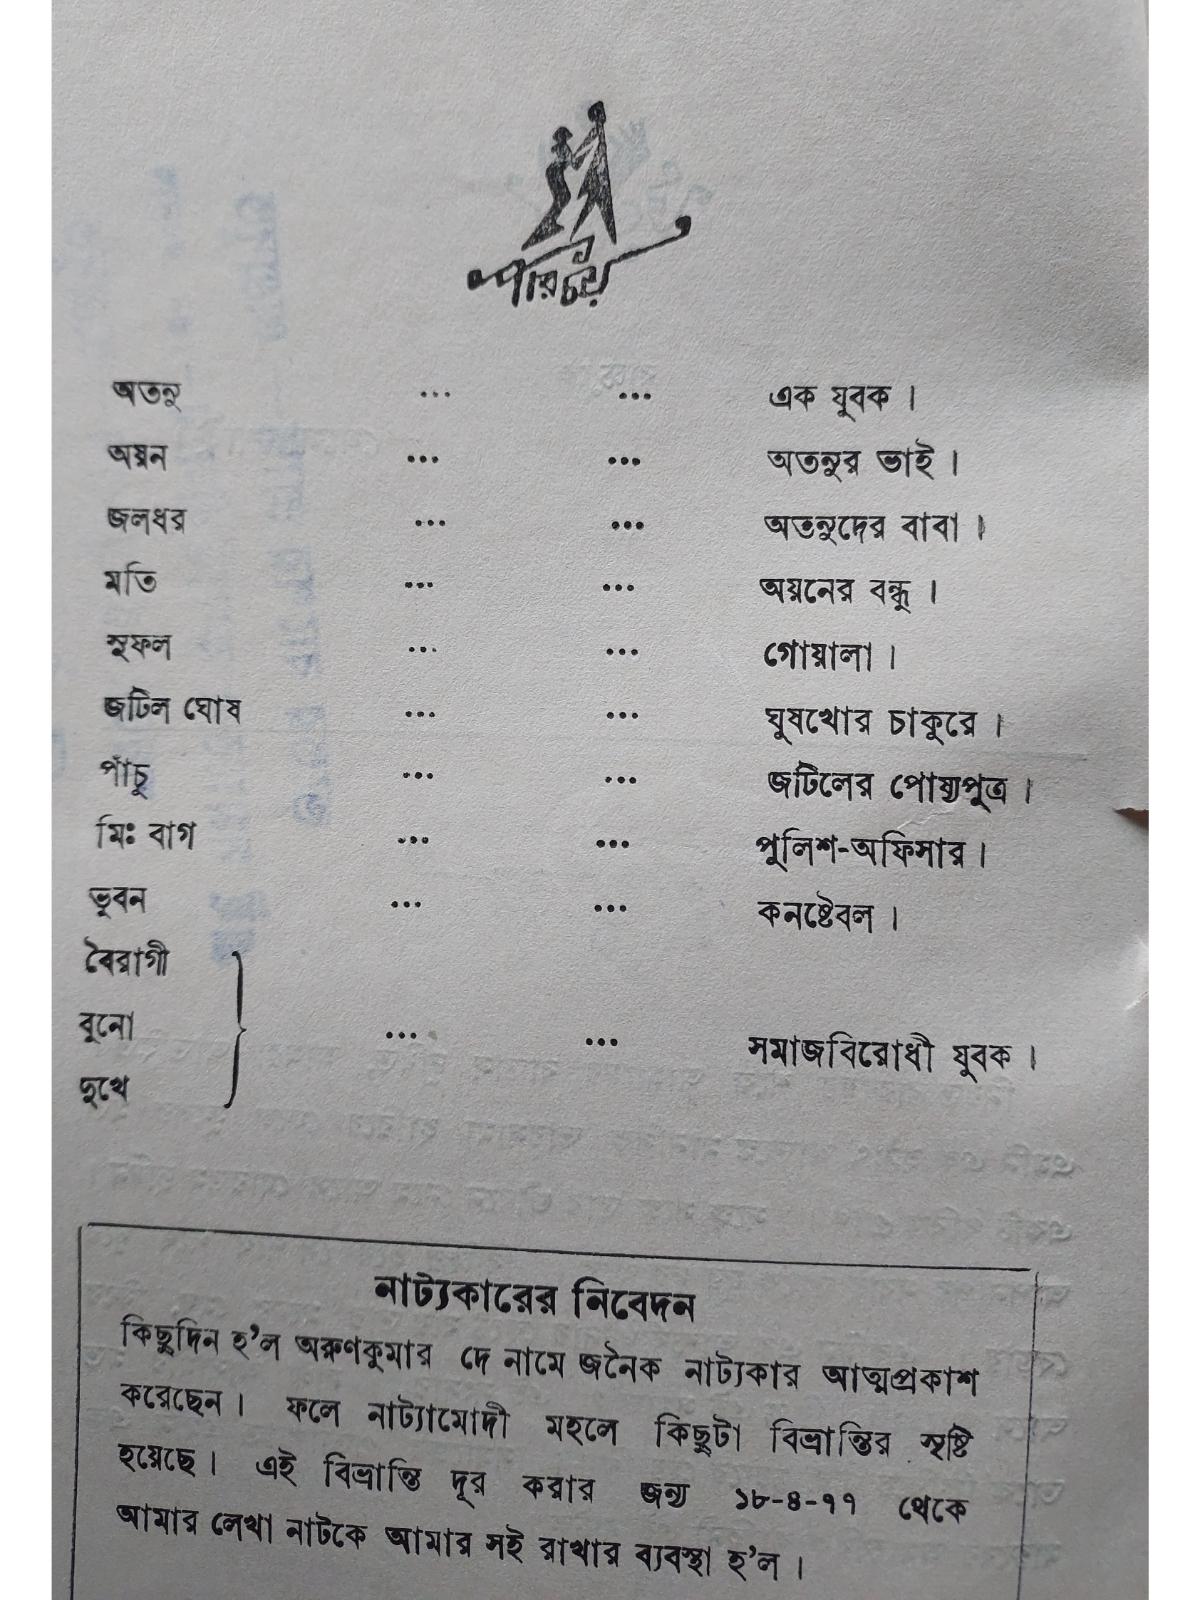 পরিচয়
অতনু ... ... এক যুবক ।
অয়ন ... ... অতনুর ভাই ।
জলধর ... ... অতনুদের বাবা ।
মতি ... ... অয়নের বন্ধু ।
সুফল ... ... গোয়ালা ।
জটিল ঘোষ ... ... ঘুষখোর চাকুরে ।
পাঁচু ... ... জটিলের পোষ্যপুত্র ।
মিঃ বাগ ... ... পুলিশ-অফিসার ।
ভুবন ... ... কনষ্টেবল ।
বৈরাগী
বুনো ... ... সমাজবিরোধী যুবক ।
দুখে
নাট্যকারের নিবেদন
কিছুদিন হ’ল অরুণকুমার দে নামে জনৈক নাট্যকার আত্মপ্রকাশ
করেছেন । ফলে নাট্যামোদী মহলে কিছুটা বিভ্রান্তির সৃষ্টি
হয়েছে । এই বিভ্রান্তি দূর করার জন্য ১৮-৪-৭৭ থেকে
আমার লেখা নাটকে আমার সই রাখার ব্যবস্থা হ’ল ।